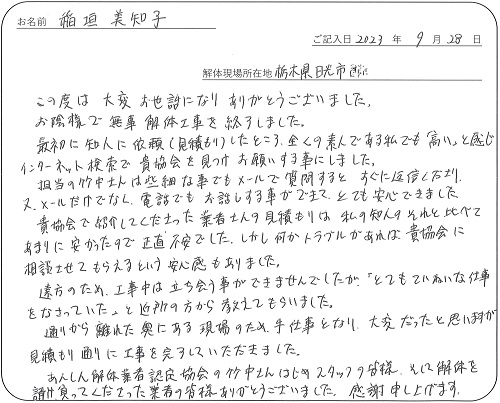 お名前 稲垣 美知子
ご記入日 2023 年 9 月 28 日
解体現場所在地 栃木県日光市
この度は 大変 お世話になり ありがとうございました。
お陰様で 無事 解体工事を 終了しました。
最初に 知人に 依頼(見積もり)したところ、全くの素人である私でも「高い」と感じ
インターネット検索で 貴協会を 見つけ お願いする事にしました。
担当の竹中さんは 些細な事でも メールで 質問すると すぐに 返信くださり
又、メールだけでなく、電話でも お話しする事ができて、とても安心できました。
貴協会で 紹介してくださった 業者さんの 見積もりは 私の知人の それと比べて
あまりに 安かったので 正直 不安でした。しかし 何か トラブルがあれば 貴協会に
相談させて もらえるという 安心感も ありました。
遠方のため、工事中は 立ち会う事ができませんでしたが、「とても ていねいな仕事
をなさっていた。」と 近所の方から 教えて もらいました。
通りから 離れた 奥にある 現場のため、手仕事となり、大変だったと思いますが
見積もり通りに 工事を 完了していただきました。
あんしん解体業者認定協会の 竹中さんはじめ スタッフの皆様、そして 解体を
請け負ってくださった 業者の皆様 ありがとうございました。感謝申し上げます。